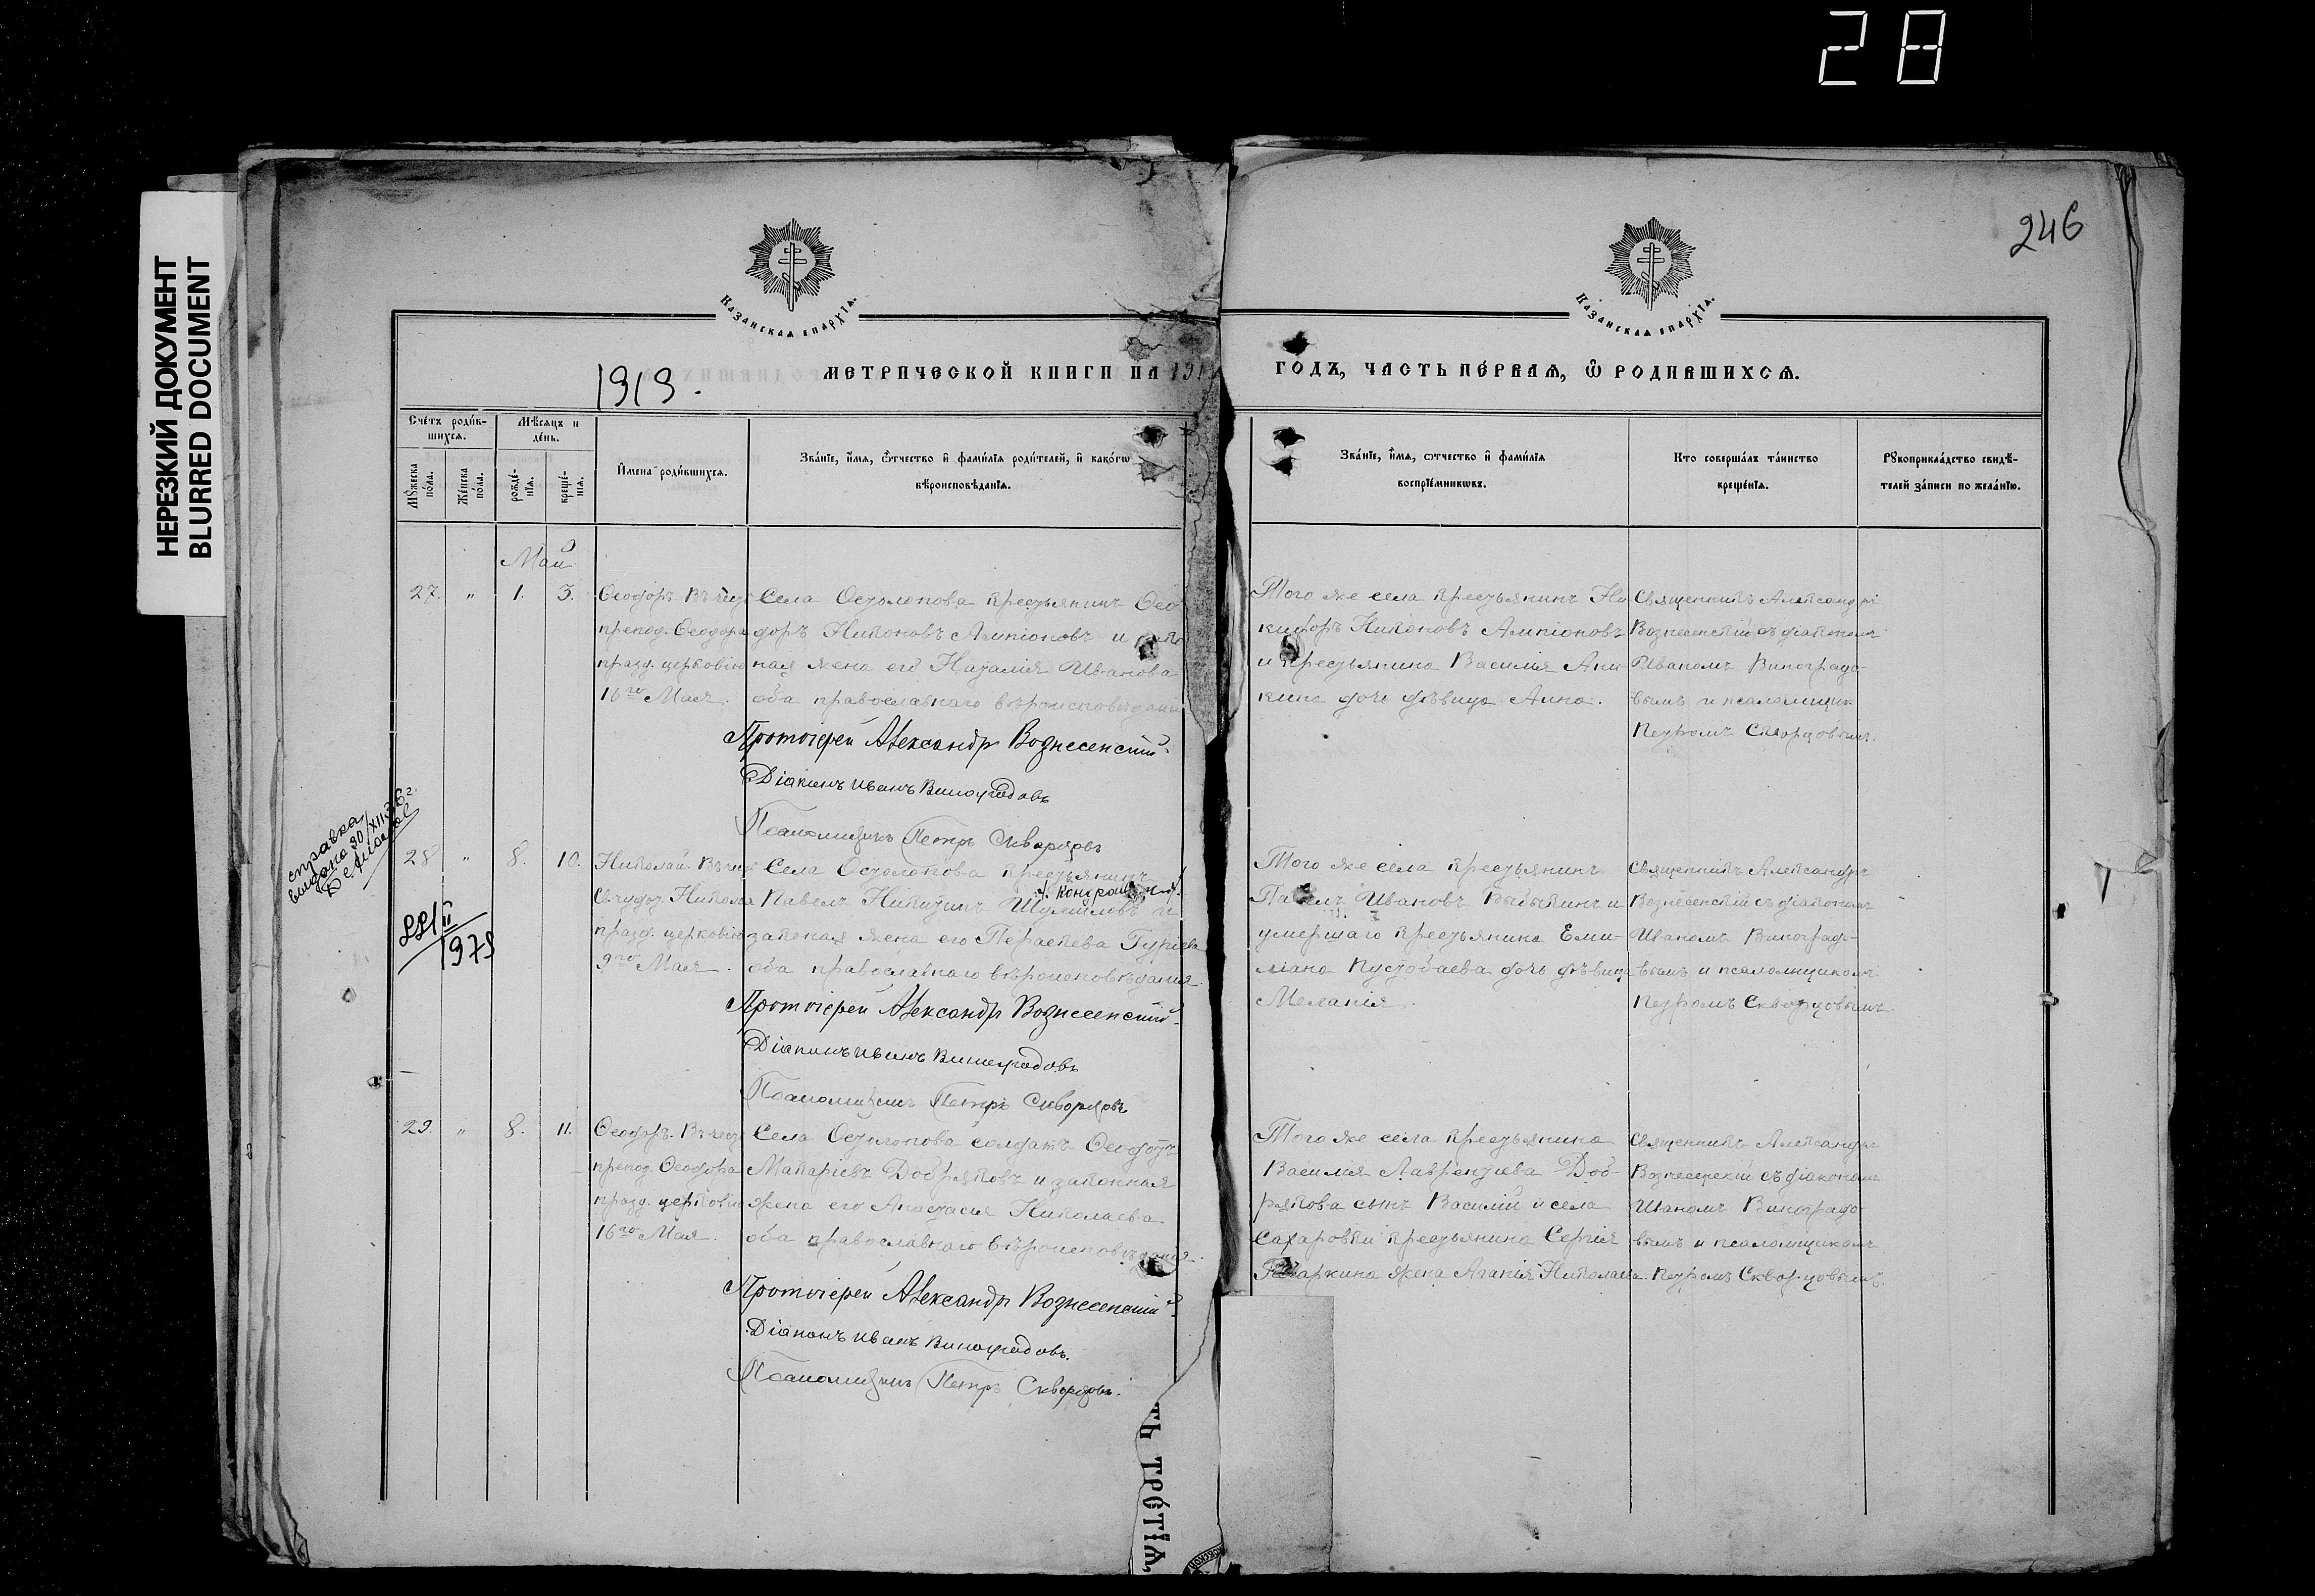 28
НЕРЕЗКИЙ ДОКУМЕНТ
BLURRED DOCUMENT
246
Казанская епархїѧ.
Казанская епархїѧ.
1919.
МЕТРИЧЕСКОЙ КНИГИ НА 191
ГОДЪ, ЧАСТЬ ПЕРВАѦ, Ѡ РОДИВШИХСѦ.
Счетъ родив-
шихсѧ.
Мѣсѧцъ и
день.
Мꙋжеска пола.
Женска пола.
рожде-
нїѧ.
креще-
нїѧ.
Имена родившихсѧ.
Званїе, имѧ, ѿчество и фамилїѧ родителей, и какогѡ
вѣроисповѣданїѧ.
Званїе, имѧ, ѿчество и фамилїѧ
воспрїемникѡвъ.
Кто совершалъ таинство
крещенїѧ.
Рꙋкоприкладство свидѣ-
телей записи по желанїю.
Май
27. " 1. 3.
Ѳеодоръ. Въ честь
препод. Ѳеодора
празд. церковію
16го Мая.
Села Остолопова крестьянинъ Ѳео
доръ Никоновъ Ампіоновъ и
ная жена его Наталія Иванова
оба православнаго вѣроисповѣдания
Протоіерей Александръ Вознесенскій
Діаконъ Иванъ Виноградовъ
Псаломщикъ Петръ Скворцовъ
Того же села крестьянинъ Ни
кифоръ Никоновъ Ампіоновъ
и крестьянина Василія Ани
кина дочь дѣвица Анна.
Священникъ Александръ
Вознесенскій съ діакономъ
Иваномъ Виноградо-
вымъ и псаломщик
Петромъ Скворцовымъ.
справка
выдана 30/XII 36 г.
28 " 8. 10.
1979
Николай. Въ честь
Св. чудот. Никола
празд. церковію
9го Мая.
Села Остолопова крестьянинъ
Павелъ Никитинъ Шумиловъ и
законная жена его Параскева Гуріева
оба православнаго вѣроисповѣдания.
Протоіерей Александръ Вознесенскій
Діаконъ Иванъ Виноградовъ
Псаломщикъ Петръ Скворцовъ
Того же села крестьянинъ
Павелъ Ивановъ и
умершаго крестьянина Еми-
ліана Пустобаева дочь дѣвица
Меланія.
Священникъ Александръ
Вознесенскій съ діакономъ
Иваномъ Виноградо-
вымъ и псаломщикомъ
Петромъ Скворцовымъ.
29. " 8. 11.
Ѳеодоръ. Въ честь
препод. Ѳеодора
празд. церковію
16го Мая.
Села Остолопова солдатъ Ѳеодотъ
Макаріевъ Добряковъ и законная
жена его Анастасія Николаева
оба православнаго вѣроисповѣдания.
Протоіерей Александръ Вознесенскій
Діаконъ Иванъ Виноградовъ.
Псаломщикъ Петръ Скворцовъ.
Того же села крестьянина
Василія Лаврентіева Доб-
рякова сынъ Василій и села
Сахаровки крестьянина Сергія
жена Агапія Николаева.
Священникъ Александръ
Вознесенскій съ діакономъ
Иваномъ Виноградо
вымъ и псаломщикомъ
Петромъ Скворцовымъ.
ТЬ ТРЕТЇѦ,